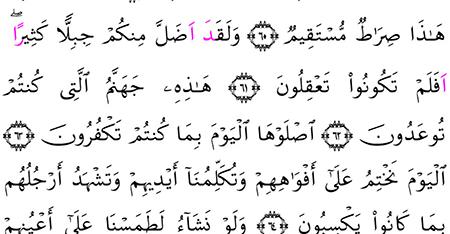 هَٰذَا صِرَاطٌ مُّسْتَقِيمٌ ٦٠ وَلَقَدَ اَضَلَّ مِنكُمْ جِبِلًّا كَثِيرًاۖ
اَفَلَمْ تَكُونُوا۟ تَعْقِلُونَ ٦١ هَٰذِهِۦ جَهَنَّمُ ٱلَّتِى كُنتُمْ
تُوعَدُونَ ٦٢ ٱصْلَوْهَا ٱلْيَوْمَ بِمَا كُنتُمْ تَكْفُرُونَ ٦٣
ٱلْيَوْمَ نَخْتِمُ عَلَىٰٓ أَفْوَٰهِهِمْ وَتُكَلِّمُنَآ أَيْدِيهِمْ وَتَشْهَدُ أَرْجُلُهُم
بِمَا كَانُوا۟ يَكْسِبُونَ ٦٤ وَلَوْ نَشَآءُ لَطَمَسْنَا عَلَىٰٓ أَعْيُنِهِمْ